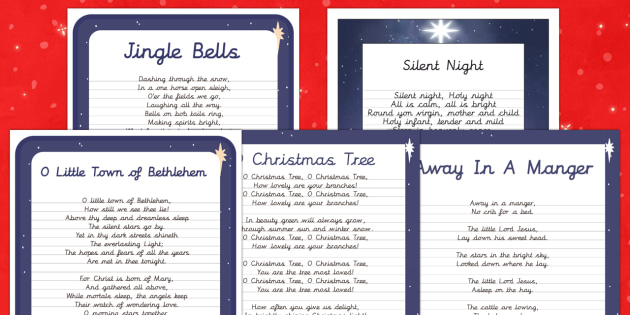 Jingle Bells
Dashing through the snow,
In a one horse open sleigh,
O'er the fields we go,
Laughing all the way.
Bells on bob tails ring,
Making spirits bright,
Silent Night
Silent night, Holy night
All is calm, all is bright
Round yon virgin, mother and child
Holy infant, tender and mild
Sleep in heavenly peace
O Little Town of Bethlehem
O little town of Bethlehem,
How still we see thee lie!
Above thy deep and dreamless sleep
The silent stars go by.
Yet in thy dark streets shineth
The everlasting Light;
The hopes and fears of all the years
Are met in thee tonight.
For Christ is born of Mary,
And gathered all above,
While mortals sleep, the angels keep
Their watch of wondering love.
O morning stars together
O Christmas Tree
O Christmas Tree, O Christmas Tree,
How lovely are your branches!
O Christmas Tree, O Christmas Tree,
How lovely are your branches!
In beauty green will always grow,
hrough summer sun and winter snow.
O Christmas Tree, O Christmas Tree,
How lovely are your branches!
O Christmas Tree, O Christmas Tree,
You are the tree most loved!
O Christmas Tree, O Christmas Tree,
You are the tree most loved!
How often you give us delight,
In brightly shining Christmas light!
Away In A Manger
Away in a manger,
No crib for a bed.
The little Lord Jesus,
Lay down his sweet head.
The stars in the bright sky,
Looked down where he lay.
The little Lord Jesus,
Asleep on the hay.
The cattle are lowing,